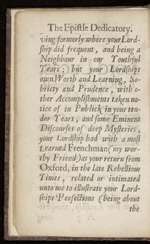 The Epistle Dedicatory.
ving formerly where your Lord-
ship did frequent, and being a
Neighbour in my Youthful
Years;) but your Lordships
own Worth and Learning, So-
briety and Prudence, with o-
ther Accomplishments taken no-
tice of in Publick in your ten-
der Years, and some Eminent
Discourses of deep Mysteries,
your Lordship had with a most
Learned Frenchman (my wor-
thy Friend) at your return from
Oxford, in the late Rebellious
Times, related or intimated
unto me to illustrate your Lord-
ships Perfections (being about
the